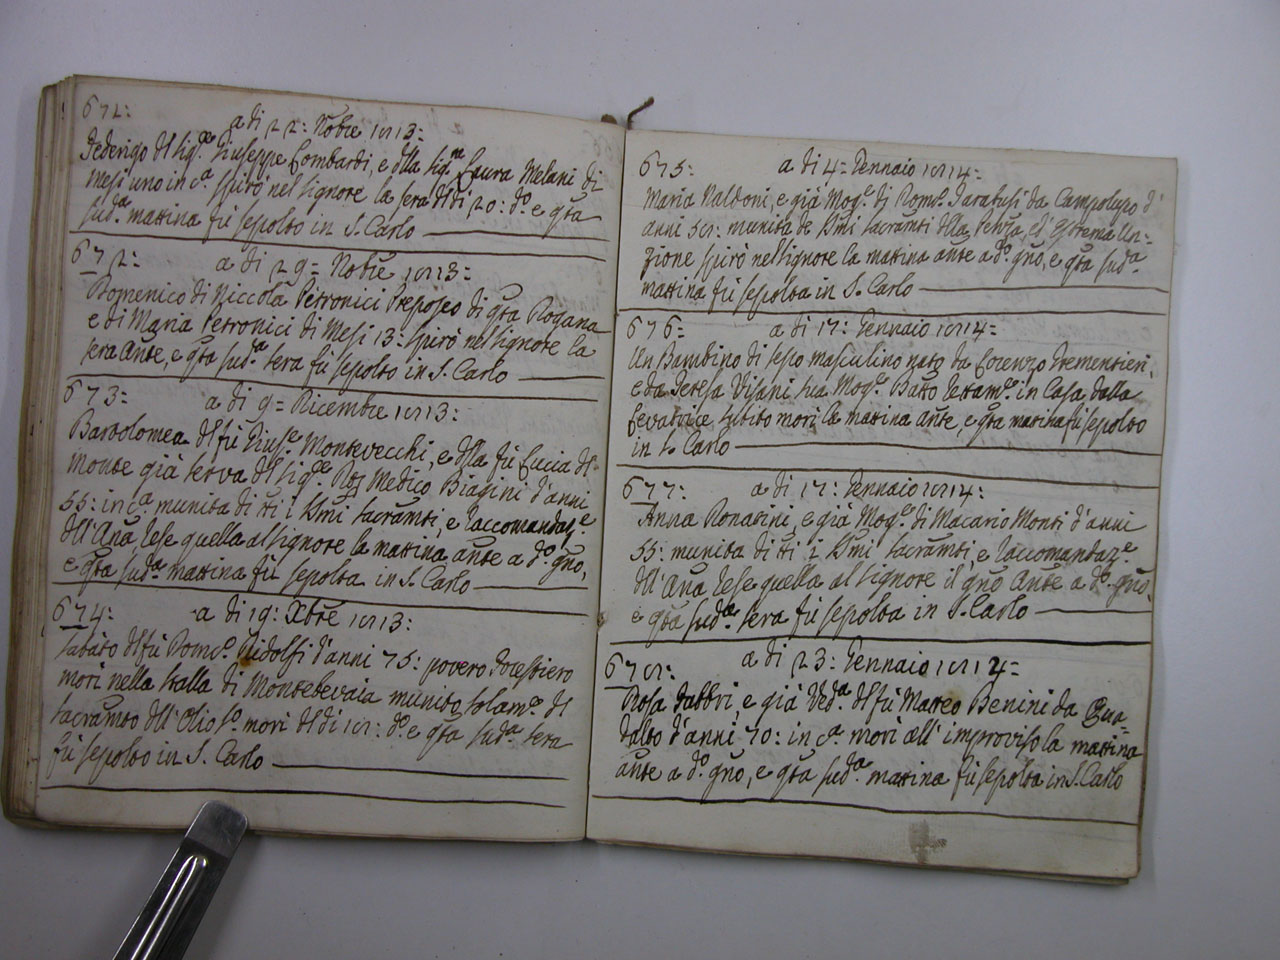 671:
a di 22: Nobre 1813:
Federigo del Sigre. Giuseppe Lombardi, e della Sigra. Laura Melani di
Mesi uno in ca. spirò nel Signore la sera del dì 20: do. e qta
sudа. mattina fù sepolto in S. Carlo
672:
a di 29= Nobre 1813:
Domenico di Niccola Petronici Preposto di qta Dogana
e di Maria Petronici di Mesi 13: spirò nel Signore la
sera Ante, e qta suda. sera fù sepolto in S. Carlo
673:
a di 9= Dicembre 1813:
Bartolomea del fù Giuse. Montevecchi, e della fù Lucia del
Monte già serva del Sige. Medico Biagini d'anni
55: in ca. munita di tti i SSmi Sacramti, e raccomandaze.
dell'Ana, rese quella al Signore la mattina ante a do. gno,
e qta suda. mattina fù sepolta in S. Carlo
674:
a di 19: Xbre 1813:
Sabato del fù Domco. Ridolfi d'anni 75: povero
morì nella stalla di munito solame. del
Sacramto dell'Olio So. morì del dì 18: do. e qta suda. sera
fù sepolto in S. Carlo
675:
a di 4= Gennaio 1814=
Maria Naldoni, e già Moge. di Domo. Tarabusi da Campolupo d'
anni 58: munita de SSmi Sacramti della Penza, ed Estrema Un=
zione spirò nel Signore la mattina ante a do. gno, e qta suda.
mattina fù sepolta in S. Carlo
676=
a di 17: Gennaio 1814=
Un Bambino di sesso masculino nato da Lorenzo Trementieri,
e da Teresa Visani sua Moge. Batto in Casa dalla
Levatrice, subito morì la mattina ante, e qta mattina fù sepolto
in S. Carlo
677:
a di 17: Gennaio 1814:
Anna Donatini, e già Moge. di Macario Monti d'anni
55: munita di tti i SSmi Sacramti, e raccomandaze.
dell'Ana rese quella al Signore il gno Ante a do. gno,
e qta suda. sera fù sepolta in S. Carlo
678:
a di 23: Gennaio 1814=
Rosa Fabbri, e già Veda. del fù Matteo Benini da Gua=
dalto d'anni 70: in ca. morì all'improviso la mattina
ante a do. gno, e qta suda. mattina fù sepolta in S. Carlo